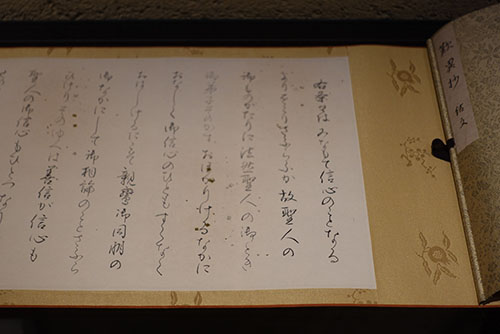 歎異抄
右条々はみなもて信心のことなる
よりおこりさふらふか故聖人の
御ものかたりに法然聖人の御とき
御弟子そのかすおほかりけるなかに
おなしく御信心のひともすくなく
おはしけるにこそ親鸞御同朋の
御なかにして御相論のことさふら
ひけりそのゆへは善信か信心も
聖人の御信心もひとつなり